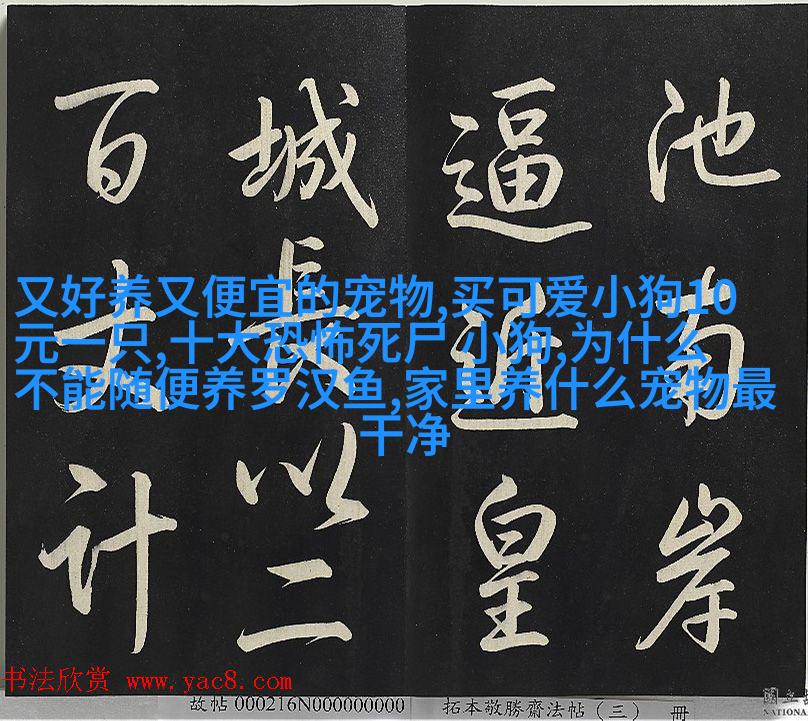 池南岸
逼皇
城長以二
百丈計
又好养又便宜的宠物,买可爱小狗10
元一只,十大恐怖死尸 小狗,为什么
不能随便养罗汉鱼,家里养什么宠物最
干净
书法欣赏 www.yac8.com
故帖 000216N000000000 拓本敬勝齋法帖（三） 冊
國立
NATIONA